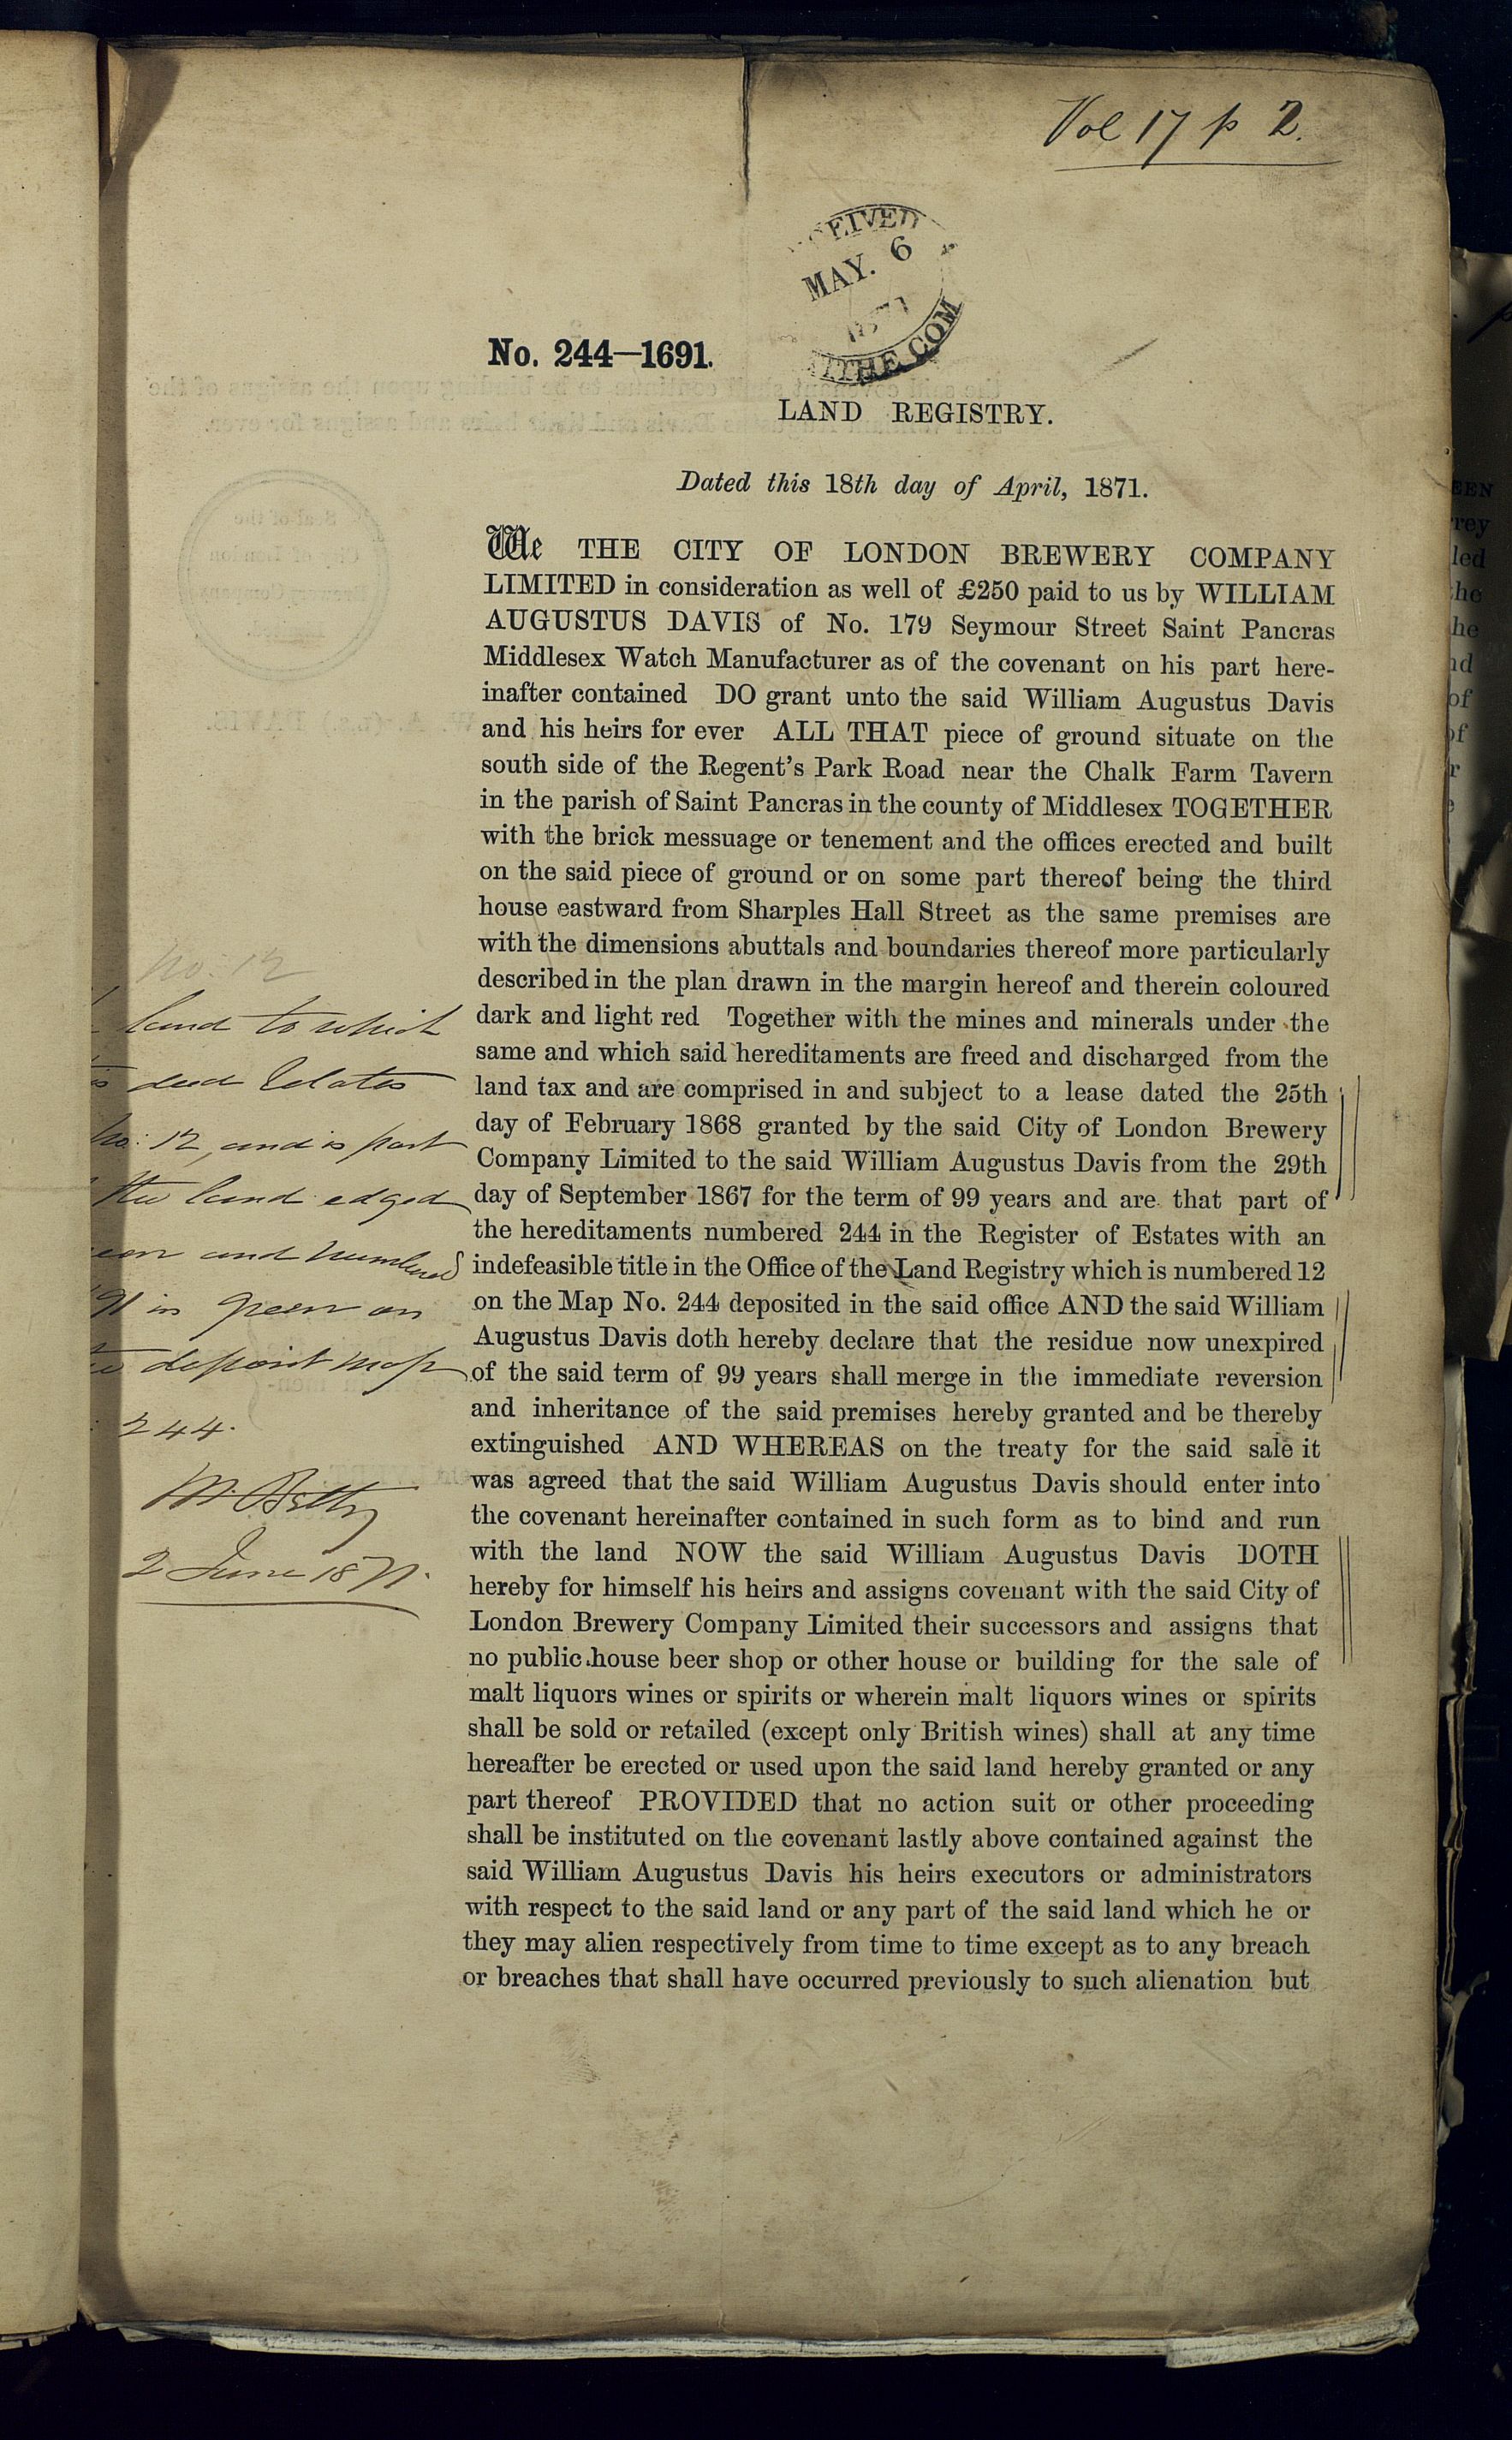 Vol 17 p 2.
MAY. 6
No. 244—1691.
LAND REGISTRY.
Dated this 18th day of April, 1871.
We THE CITY OF LONDON BREWERY COMPANY
LIMITED in consideration as well of £250 paid to us by WILLIAM
AUGUSTUS DAVIS of No. 179 Seymour Street Saint Pancras
Middlesex Watch Manufacturer as of the covenant on his part here-
inafter contained DO grant unto the said William Augustus Davis
and his heirs for ever ALL THAT piece of ground situate on the
south side of the Regent's Park Road near the Chalk Farm Tavern
in the parish of Saint Pancras in the county of Middlesex TOGETHER
with the brick messuage or tenement and the offices erected and built
on the said piece of ground or on some part thereof being the third
house eastward from Sharples Hall Street as the same premises are
with the dimensions abuttals and boundaries thereof more particularly
described in the plan drawn in the margin hereof and therein coloured
dark and light red Together with the mines and minerals under the
same and which said hereditaments are freed and discharged from the
land tax and are comprised in and subject to a lease dated the 25th
day of February 1868 granted by the said City of London Brewery
Company Limited to the said William Augustus Davis from the 29th
day of September 1867 for the term of 99 years and are that part of
the hereditaments numbered 244 in the Register of Estates with an
indefeasible title in the Office of the Land Registry which is numbered 12
on the Map No. 244 deposited in the said office AND the said William
Augustus Davis doth hereby declare that the residue now unexpired
of the said term of 99 years shall merge in the immediate reversion
and inheritance of the said premises hereby granted and be thereby
extinguished AND WHEREAS on the treaty for the said sale it
was agreed that the said William Augustus Davis should enter into
the covenant hereinafter contained in such form as to bind and run
with the land NOW the said William Augustus Davis DOTH
hereby for himself his heirs and assigns covenant with the said City of
London Brewery Company Limited their successors and assigns that
no public house beer shop or other house or building for the sale of
malt liquors wines or spirits or wherein malt liquors wines or spirits
shall be sold or retailed (except only British wines) shall at any time
hereafter be erected or used upon the said land hereby granted or any
part thereof PROVIDED that no action suit or other proceeding
shall be instituted on the covenant lastly above contained against the
said William Augustus Davis his heirs executors or administrators
with respect to the said land or any part of the said land which he or
they may alien respectively from time to time except as to any breach
or breaches that shall have occurred previously to such alienation but
No: 12
land to which
deed relates
No: 12, and is part
the land edged
and numbered
in green on
deposit map
244.
2 June 1871.